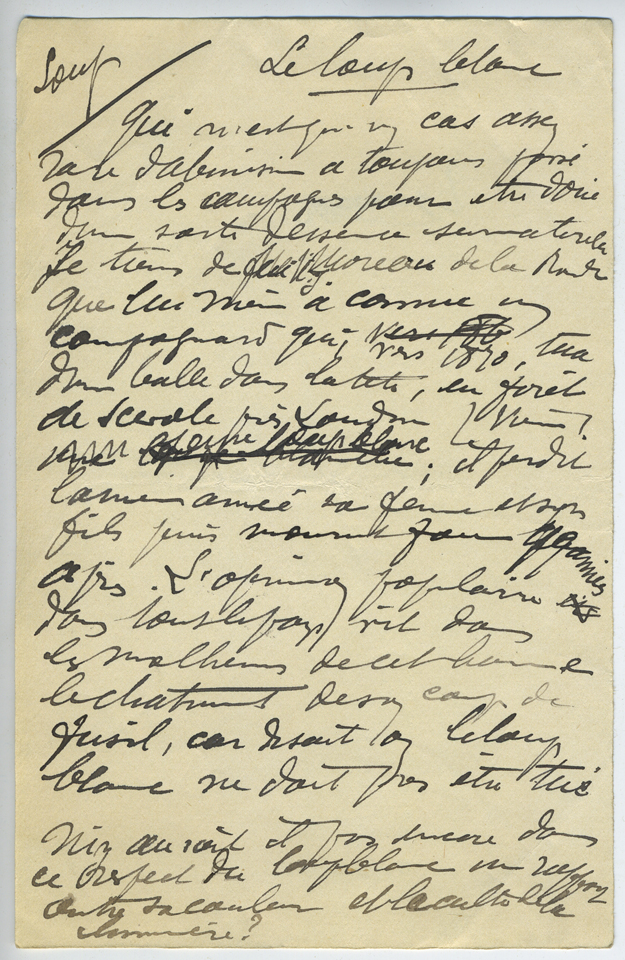 Loup
Le loup blanc
qui n'est qu'un cas assez
rare d'albinisme a toujours passé
dans les campagnes pour être doué
d'une sorte d'essence surnaturelle
Je tiens de Moreau de la Ronde
que lui même à connu un
campagnard qui, vers 1870, tua
d'une balle dans la tête, en forêt
de Scevole près Loudun (Vienne)
un loup blanc ; il perdit
la même année sa femme et son
fils puis mourut fou qq années
après. L'opinion populaire
dans tout le pays vit dans
les malheurs de cet homme
le chatiment de son coup de
fusil, car disait on le loup
blanc ne doit pas être tué
N'y aurait il pas encore dans
ce respect du loup blanc un rapport
entre sa couleur et le culte de la
lumière?